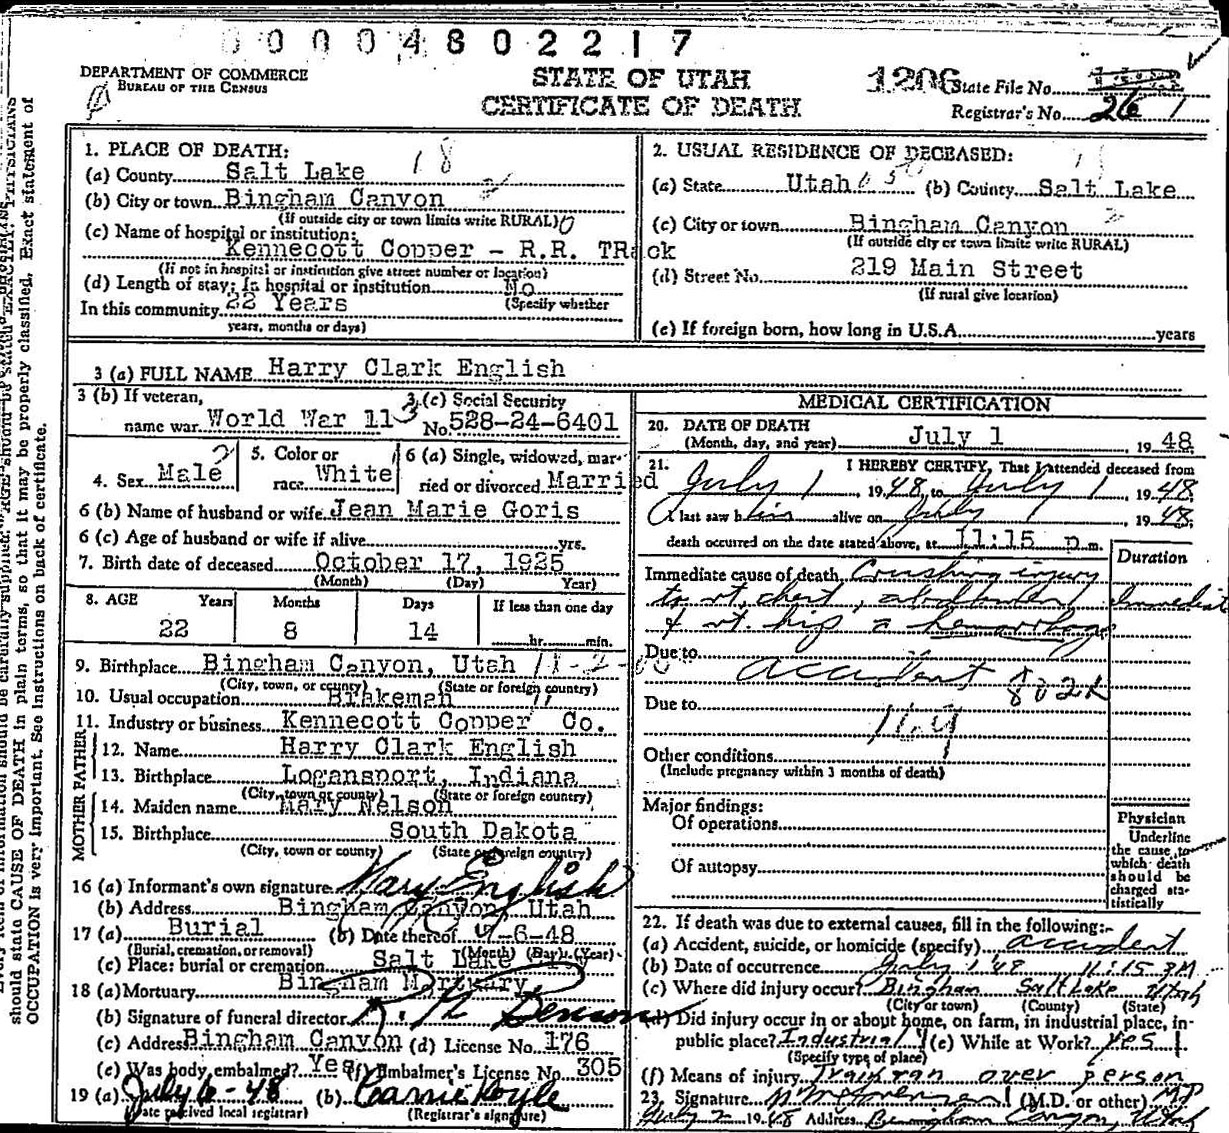 0 0 0 0 4 8 0 2 2 1 7
DEPARTMENT OF COMMERCE
BUREAU OF THE CENSUS
STATE OF UTAH
CERTIFICATE OF DEATH
1206
State File No.
Registrar's No. 26
1. PLACE OF DEATH: 18
(a) County Salt Lake
(b) City or town Bingham Canyon
(If outside city or town limits write RURAL)
(c) Name of hospital or institution:
Kennecott Copper - R.R. TRack
(If not in hospital or institution give street number or location)
(d) Length of stay: In hospital or institution No
In this community 22 Years (Specify whether
years, months or days)
2. USUAL RESIDENCE OF DECEASED:
(a) State Utah (b) County Salt Lake
(c) City or town Bingham Canyon
(If outside city or town limits write RURAL)
(d) Street No. 219 Main Street
(If rural give location)
(e) If foreign born, how long in U.S.A. years
3 (a) FULL NAME Harry Clark English
3 (b) If veteran,
name war World War 11
3 (c) Social Security
No. 528-24-6401
4. Sex Male
5. Color or
race White
6 (a) Single, widowed, mar-
ried or divorced Married
6 (b) Name of husband or wife Jean Marie Goris
6 (c) Age of husband or wife if alive yrs.
7. Birth date of deceased October 17, 1925
(Month) (Day) Year)
8. AGE Years Months Days If less than one day
22 8 14 hr. min.
9. Birthplace Bingham Canyon, Utah
(City, town, or county) (State or foreign country)
10. Usual occupation Brakeman
11. Industry or business Kennecott Copper Co.
FATHER
12. Name Harry Clark English
13. Birthplace Logansport, Indiana
(City, town or county) (State or foreign country)
MOTHER
14. Maiden name Mary Nelson
15. Birthplace South Dakota
(City, town or county) (State or foreign country)
16 (a) Informant's own signature Mary English
(b) Address Bingham Canyon, Utah
17 (a) Burial (b) Date thereof 7-6-48
(Burial, cremation, or removal) (Month) (Day) (Year)
(c) Place: burial or cremation Salt Lake
18 (a) Mortuary Bingham Mortuary
(b) Signature of funeral director
(c) Address Bingham Canyon (d) License No. 176
(e) Was body embalmed? Yes (f) Embalmer's License No. 305
19 (a) July 6-48 (b)
(Date received local registrar) (Registrar's signature)
MEDICAL CERTIFICATION
20. DATE OF DEATH
(Month, day, and year) July 1 1948
21. I HEREBY CERTIFY, That I attended deceased from
July 1, 1948, to July 1, 1948
I last saw him alive on July 1, 1948,
death occurred on the date stated above, at 11:15 p.m.
Duration
Immediate cause of death Crushing injury
to rt. chest, abdomen Immediate
& rt. hip hemorrhage
Due to accident
Due to
Other conditions
(Include pregnancy within 3 months of death)
Major findings:
Of operations
Of autopsy
Physician
Underline
the cause to
which death
should be
charged sta-
tistically
22. If death was due to external causes, fill in the following:-
(a) Accident, suicide, or homicide (specify) accident
(b) Date of occurrence July 1 '48 11:15 PM
(c) Where did injury occur? Bingham Salt Lake Utah
(City or town) (County) (State)
(d) Did injury occur in or about home, on farm, in industrial place, in-
public place? Industrial (e) While at Work? Yes
(Specify type of place)
(f) Means of injury Train ran over person
23. Signature (M.D. or other) MD
July 2 1948 Address Bingham Canyon, Utah
should state CAUSE OF DEATH in plain terms, so that it may be properly classified. Exact statement of
OCCUPATION is very important. See instructions on back of certificate.